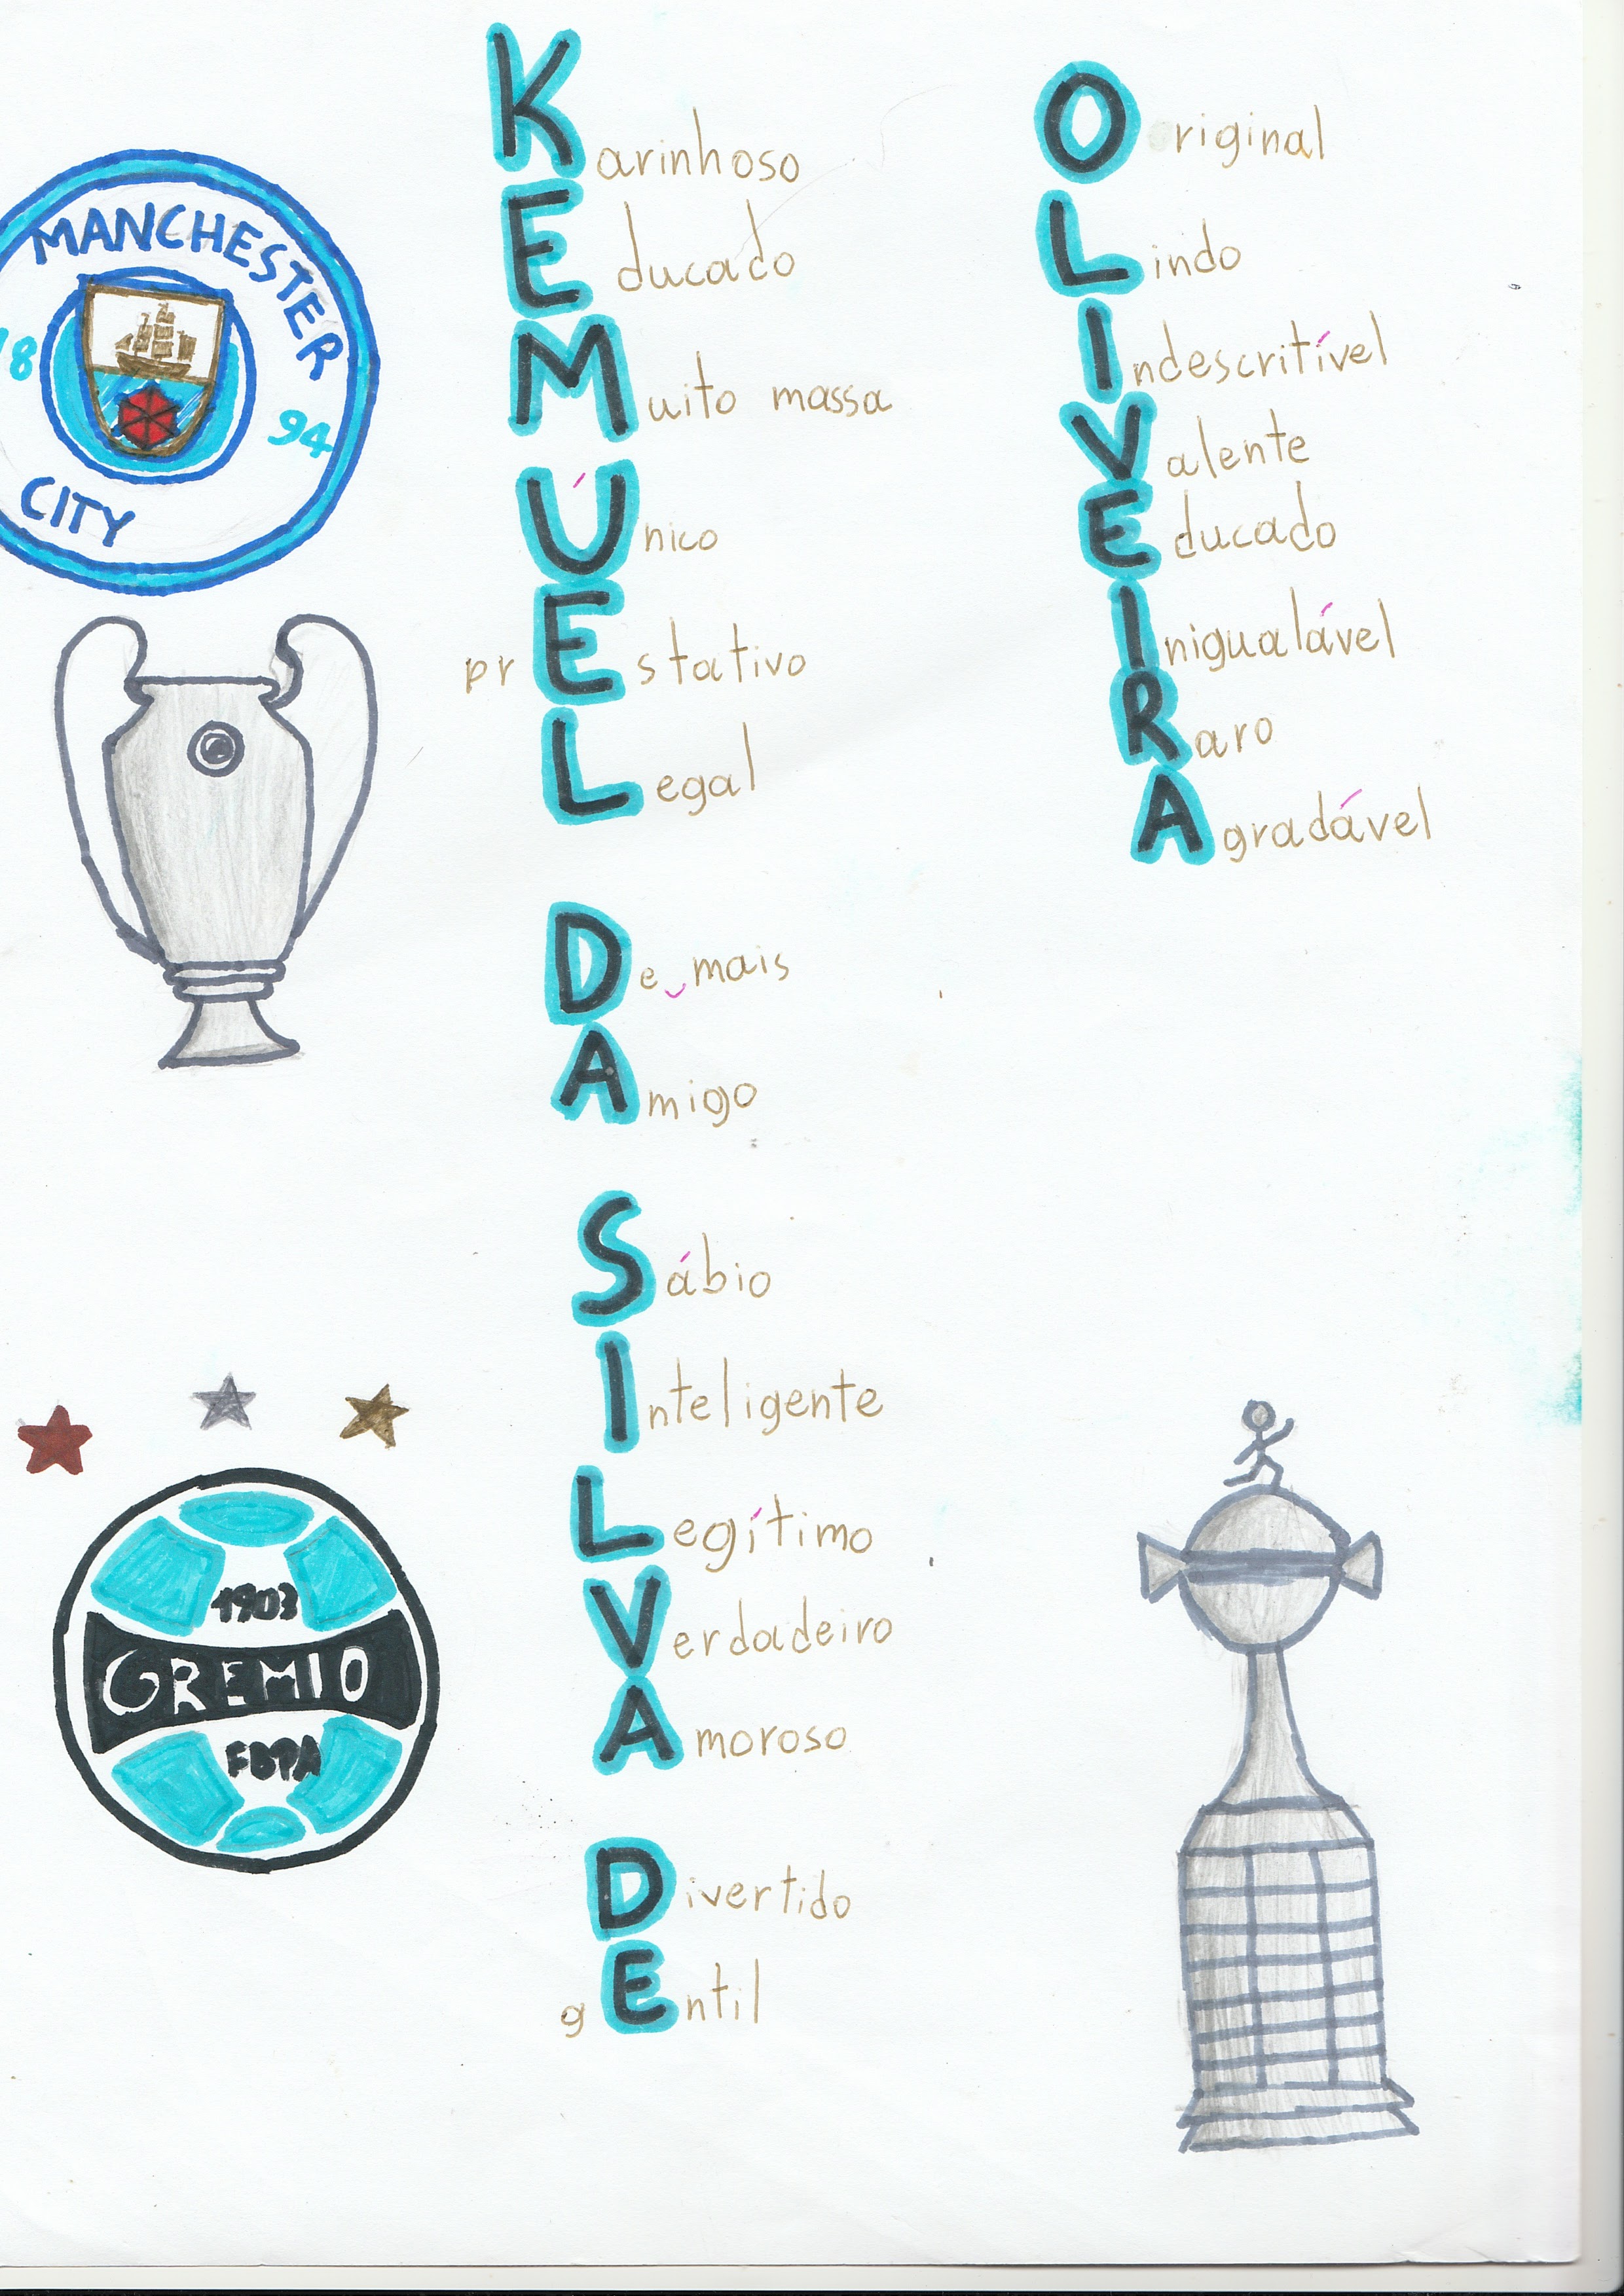 MANCHESTER
18 94
CITY
Karinhoso
Educado
Muito massa
Único
prEstativo
Legal
De mais
Amigo
Sábio
Inteligente
Legítimo
Verdadeiro
Amoroso
Divertido
gEntil
Original
Lindo
Indescritível
Valente
Educado
Inigualável
Raro
Agradável
1903
GREMIO
FBPA